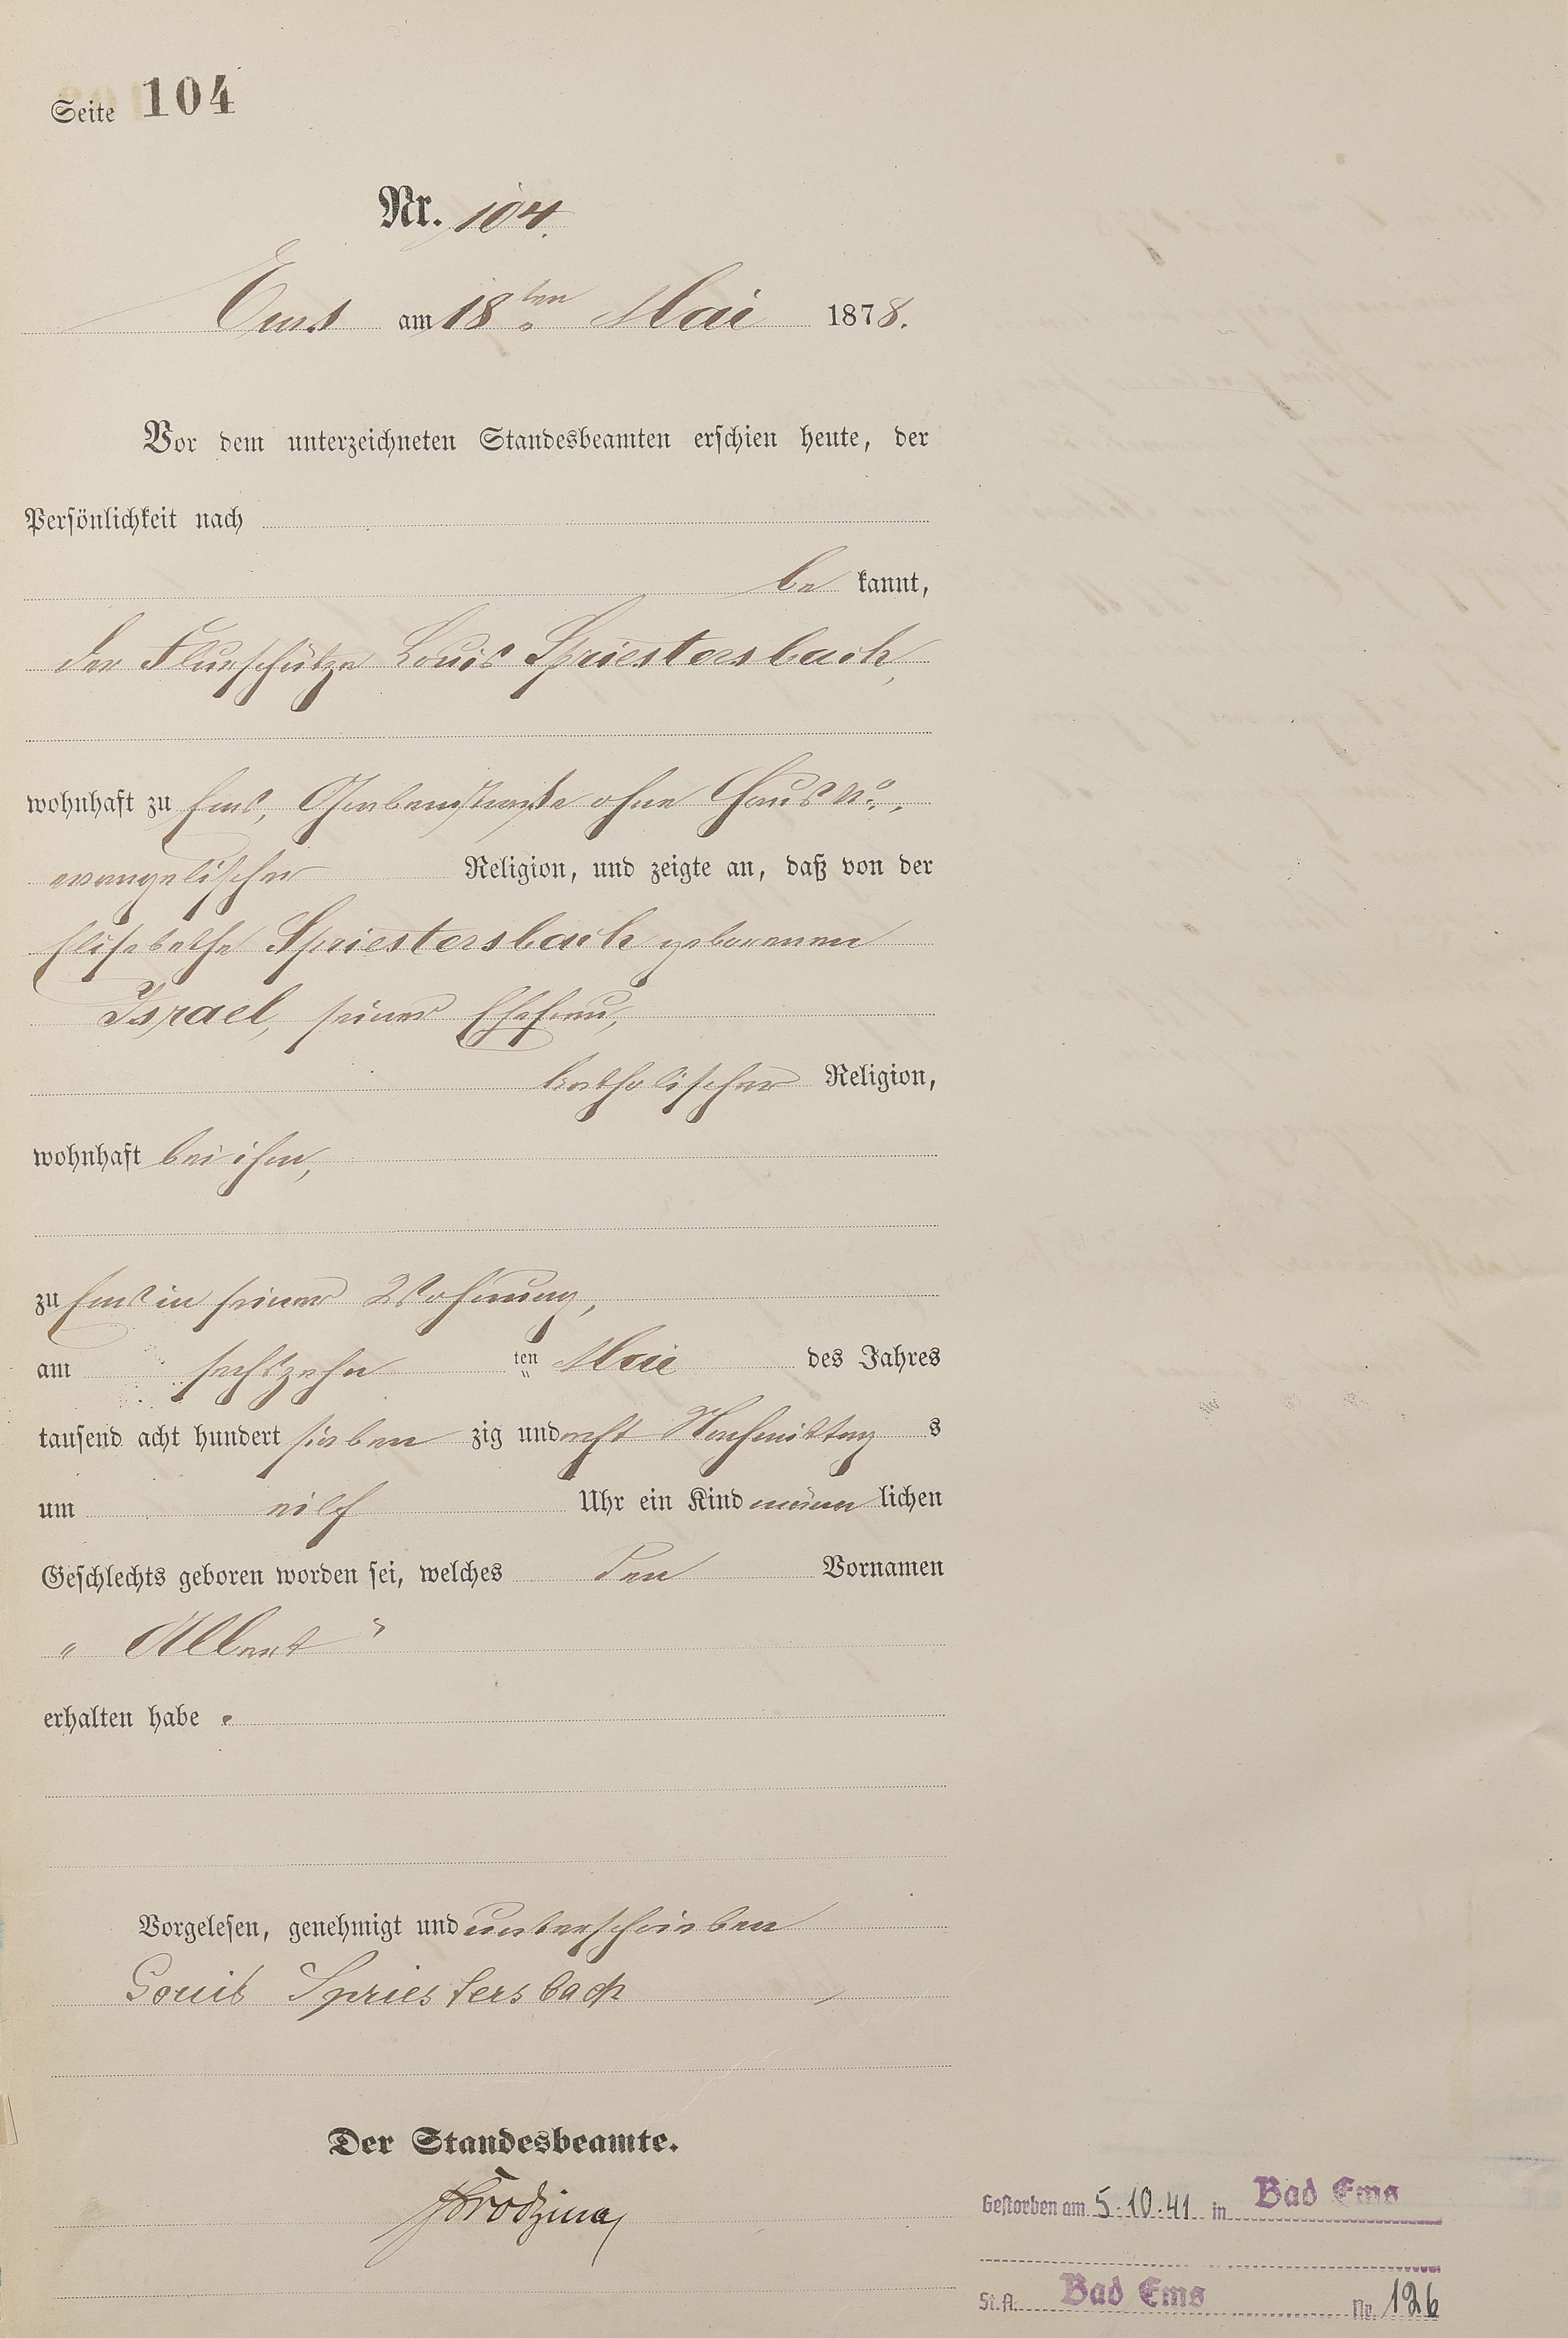 Seite 104
Nr. 104.
Ems am 18ten Mai 1878.
Vor dem unterzeichneten Standesbeamten erschien heute, der
Persönlichkeit nach
be kannt,
der Flurschütze Louis Spriestersbach,
wohnhaft zu Ems, ohne Haus No.,
evangelischer Religion, und zeigte an, daß von der
Elisabethe Spriestersbach geborenen
Israel, seiner Ehefrau,
katholischer Religion,
wohnhaft bei ihm,
zu Ems in seiner Wohnung,
am sechszehn ten Mai des Jahres
tausend acht hundert sieben zig und acht Nachmittag s
um eilf Uhr ein Kind männ lichen
Geschlechts geboren worden sei, welches den Vornamen
„ Albert "
erhalten habe .
Vorgelesen, genehmigt und unterschrieben
Louis Spriestersbach
Der Standesbeamte.
Gestorben am 5.10.41 in Bad Ems
St. A. Bad Ems Nr. 126